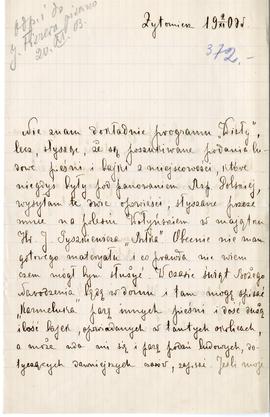 Odp. i do
J. Herera pisano
20. XI. 03.
372.-
Żytomierz 19 4/XI 03 r
Nie znam dokładnie programu „Wisły",
lecz, słysząc, że są poszukiwane podania lu-
dowe pieśni i bajki z miejscowości, które
niegdyś były pod panowaniem Rzp. Polskiej,
wysyłam te dwie opowieści, słyszane przeze
mnie na polesiu Wołyńskiem w majątku
Hr. J. Tyszkiewicza Obecnie nie mam
gotowego materyału i co prawda nie wiem
czem mógłbym służyć. W czasie świąt Bożego
Narodzenia będę w domu i tam mogę spisać
parę innych pieśni i dość dużą
ilość bajek, opowiadanych w tamtych okolicach,
a może uda mi się i parę podań ludowych, do-
tyczących dawniejszych czasów, zapisać. Jeśli moje